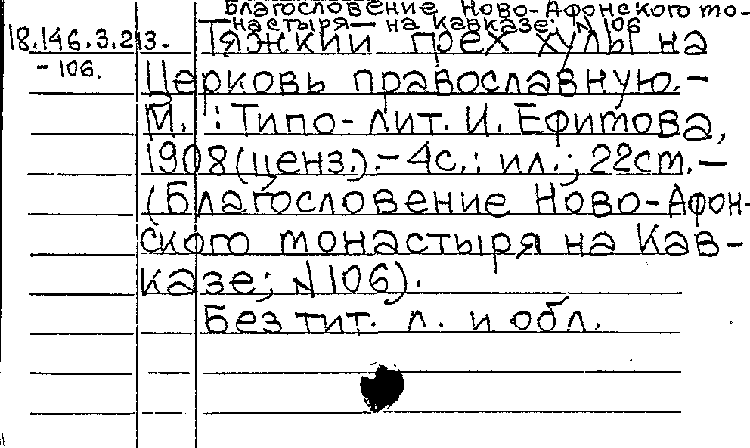 Благословение Ново-Афонского мо-
настыря на Кавказе; №106
18.146.3.213. Тяжкий грех хулы на
-106. Церковь православную.-
М.: Типо-лит. И. Ефимова,
1908(ценз.).-4с.: ил.; 22см.-
(Благословение Ново-Афон-
ского монастыря на Кав-
казе; №106).
Без тит. л. и обл.